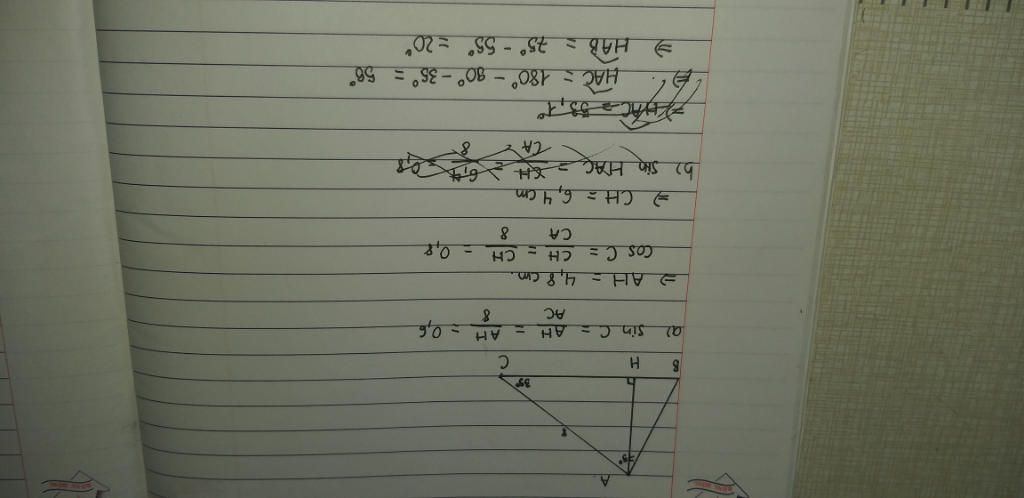 A
75°
8
35°
B H C
a) sin C = AH/AC = AH/8 = 0,6
=> AH = 4,8 cm.
cos C = CH/CA = CH/8 = 0,8
=> CH = 6,4 cm
b) sin HAC = CH/CA = 6,4/8 = 0,8
=> HAC = 53,1°
=> HAC = 180° - 90° - 35° = 55°
=> HAB = 75° - 55° = 20°